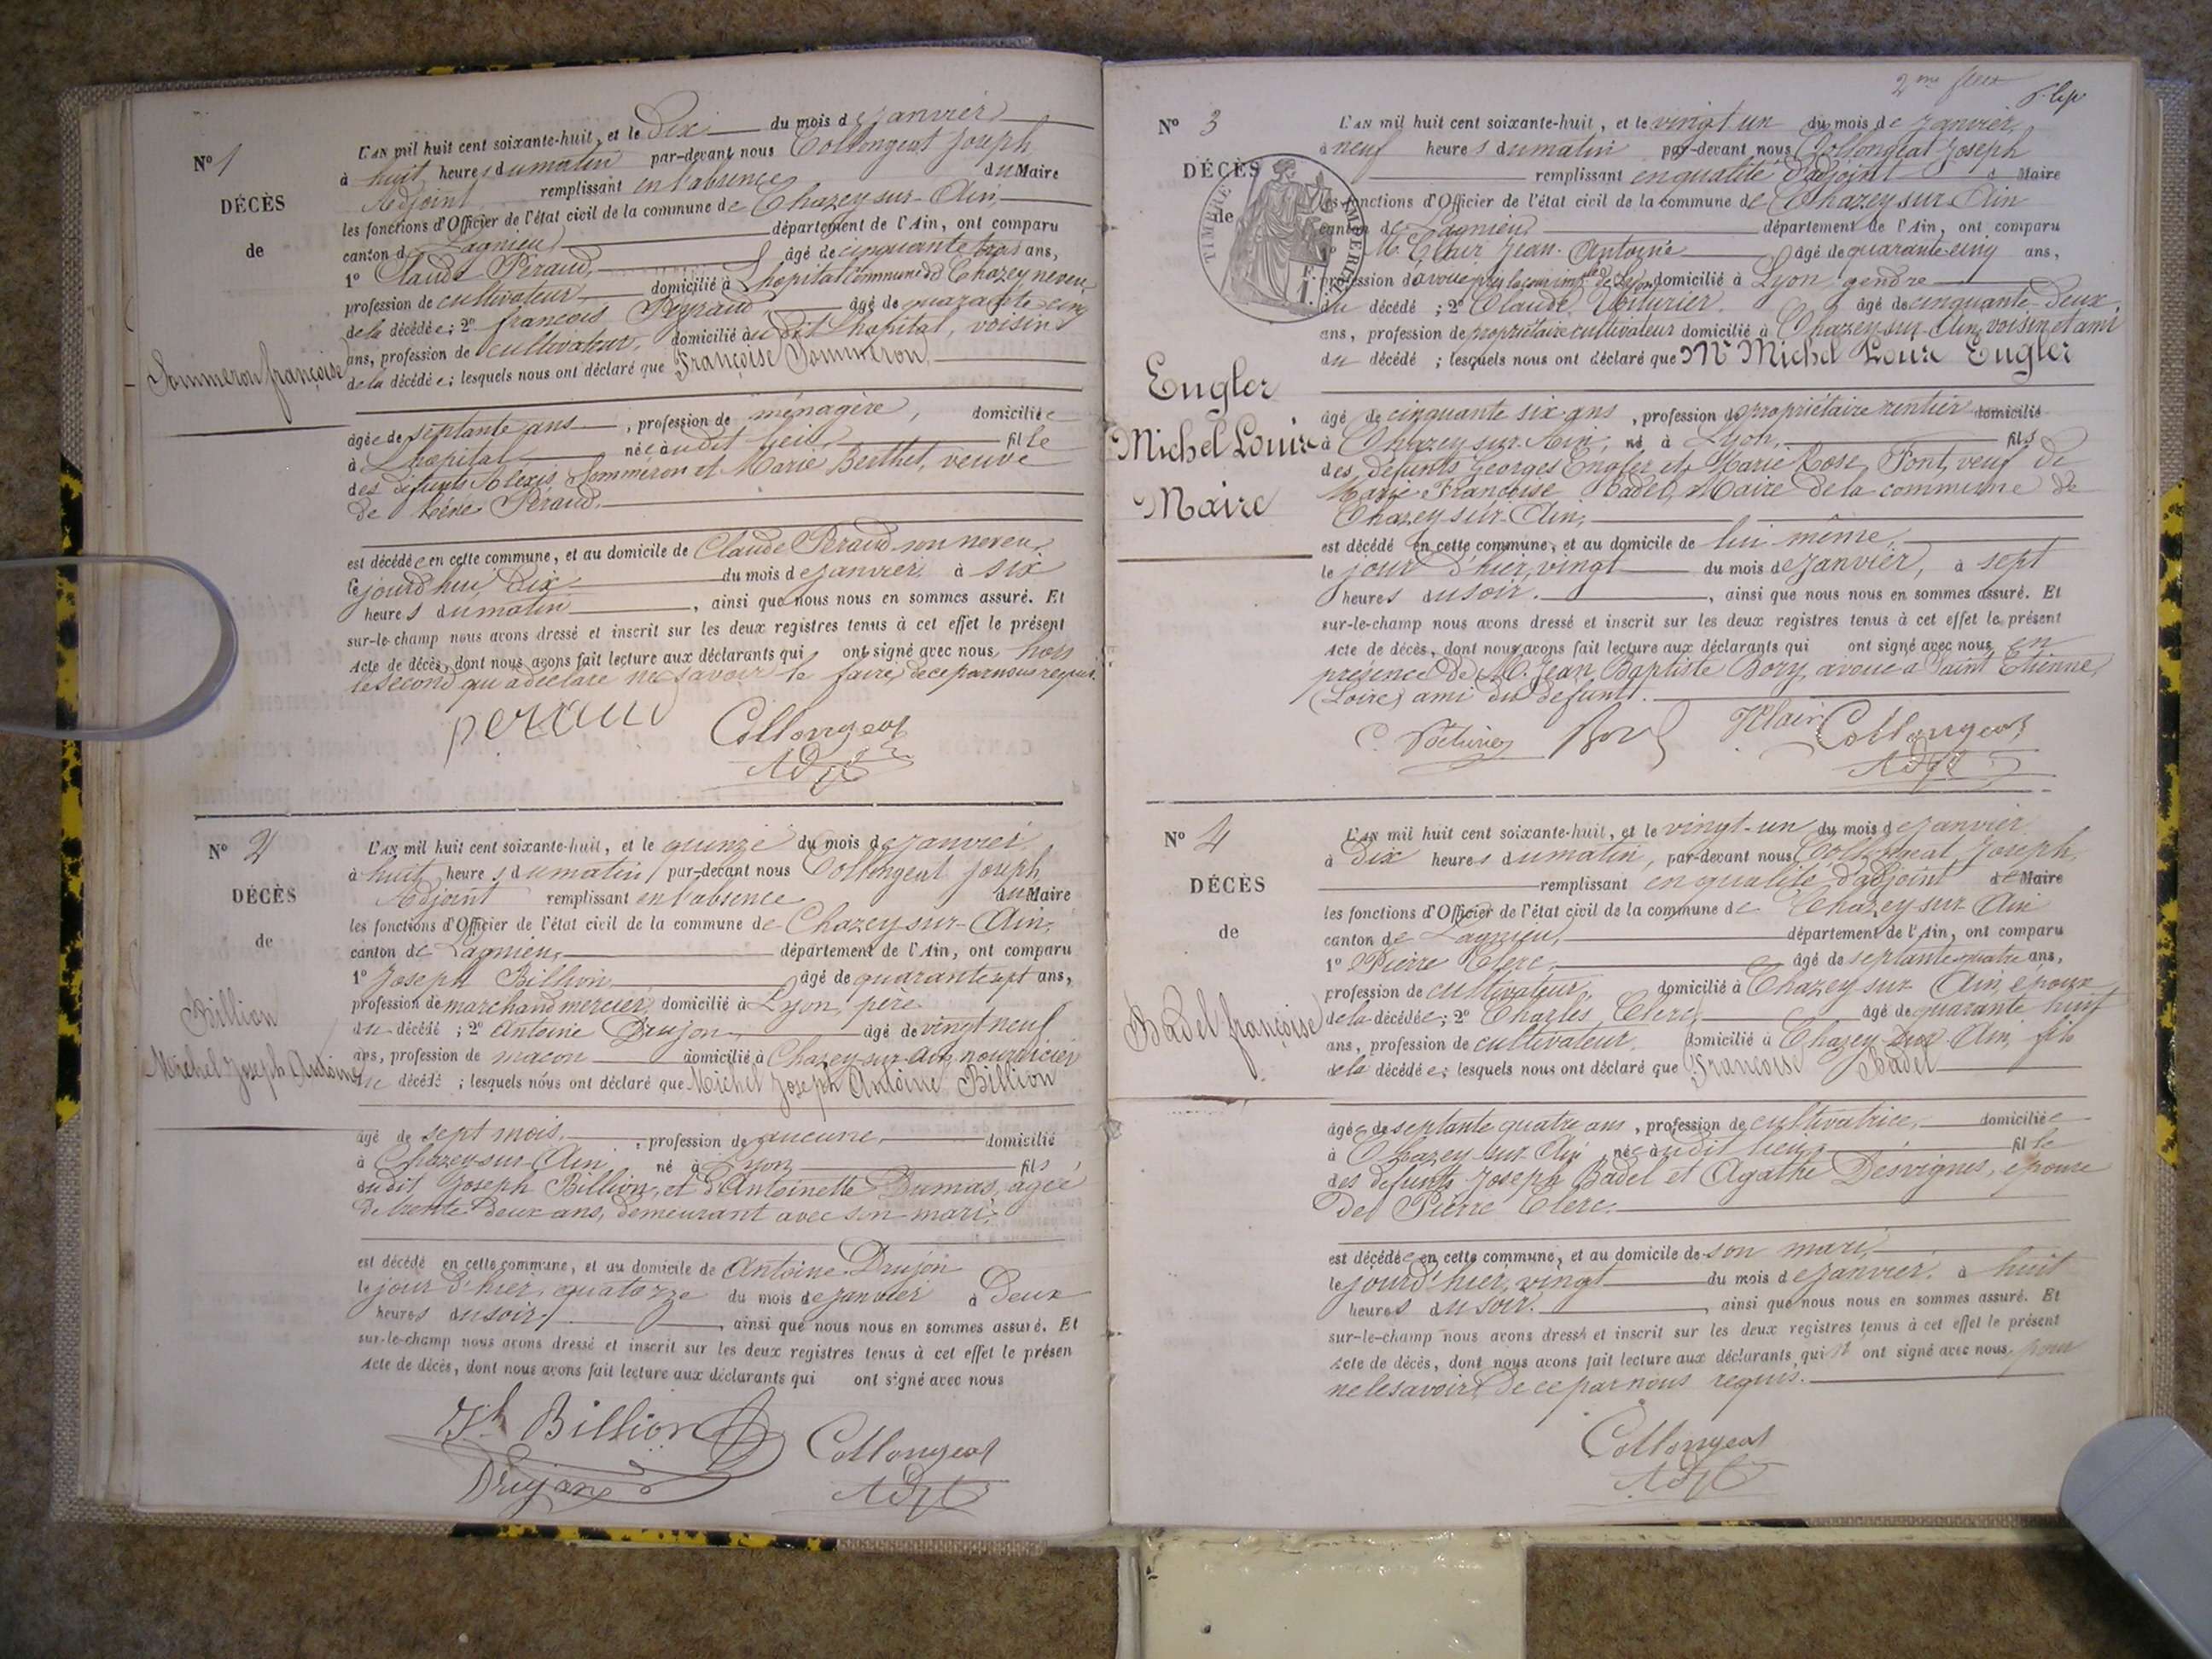 N° 1
DÉCÈS
de
Sommeron françoise
L'AN mil huit cent soixante-huit, et le Dix du mois de janvier
à huit heures du matin par-devant nous Collongeat Joseph
Adjoint remplissant en l'absence du Maire
les fonctions d'Officier de l'état civil de la commune de Chazey-sur-Ain,
canton de Lagnieu département de l'Ain, ont comparu
1° Claude Péraud, âgé de cinquante trois ans,
profession de cultivateur domicilié à Lhopital commune de Chazey neveu
de la décédée; 2° françois Peyraud âgé de quarante cinq
ans, profession de cultivateur, domicilié au dit Lhopital, voisin
de la décédée; lesquels nous ont déclaré que Françoise Sommeron,
âgée de septante ans, profession de ménagère, domiciliée
à Lhopital née audit lieu fille
des défunts Alexis Sommeron et Marie Berthet, veuve
de Péraud.
est décédée en cette commune, et au domicile de Claude Péraud son neveu,
le jourd'hui Dix du mois de janvier, à six
heures du matin, ainsi que nous nous en sommes assuré. Et
sur-le-champ nous avons dressé et inscrit sur les deux registres tenus à cet effet le présent
Acte de décès, dont nous avons fait lecture aux déclarants qui ont signé avec nous, non
le second qui a déclaré ne savoir le faire, de ce par nous requis.
perraud Collongeat
Adjt
N° 2
DÉCÈS
de
Billion
Michel Joseph Antoine
L'AN mil huit cent soixante-huit, et le quinze du mois de janvier
à huit heures du matin par-devant nous Collongeat Joseph
Adjoint remplissant en l'absence du Maire
les fonctions d'Officier de l'état civil de la commune de Chazey-sur-Ain,
canton de Lagnieu, département de l'Ain, ont comparu
1° Joseph Billion âgé de quarante sept ans,
profession de marchand mercier, domicilié à Lyon, père
du décédé; 2° Antoine Drujon, âgé de vingt neuf
ans, profession de maçon domicilié à Chazey-sur-Ain, nourricier
du décédé; lesquels nous ont déclaré que Michel Joseph Antoine Billion
âgé de sept mois, profession de aucune, domicilié
à Chazey-sur-Ain né à Lyon fils
dudit Joseph Billion, et d'Antoinette Dumas, agée
de trente deux ans, demeurant avec son mari.
est décédé en cette commune, et au domicile de Antoine Drujon
le jour d'hier, quatorze du mois de janvier à Deux
heures du soir, ainsi que nous nous en sommes assuré. Et
sur-le-champ nous avons dressé et inscrit sur les deux registres tenus à cet effet le présen
Acte de décès, dont nous avons fait lecture aux déclarants qui ont signé avec nous
Jh Billion Collongeat
Drujon Adjt
2me
N° 3
DÉCÈS
de
TIMBRE IMPERIAL
Engler
Michel Louis
Maire
L'AN mil huit cent soixante-huit, et le vingt un du mois de janvier,
à neuf heures du matin par-devant nous Collongeat Joseph
remplissant en qualité d'adjoint Maire
les fonctions d'Officier de l'état civil de la commune de Chazey sur Ain
canton de Lagnieu département de l'Ain, ont comparu
1° M. Clair Jean-Antoine âgé de quarante cinq ans,
profession d'avoué près la cour imple de Lyon domicilié à Lyon, gendre
du décédé; 2° Claude Voiturier âgé de cinquante-deux
ans, profession de propriétaire cultivateur domicilié à Chazey-sur-Ain, voisin et ami
du décédé; lesquels nous ont déclaré que Mr Michel Louis Engler
âgé de cinquante six ans, profession de propriétaire rentier domicilié
à Chazey-sur-Ain, né à Lyon, fils
des défunts Georges Engler et Marie Rose Font, veuf de
Marie Françoise Badel, Maire de la commune de
Chazey-sur-Ain,
est décédé en cette commune, et au domicile de lui même,
le jour d'hier, vingt du mois de janvier, à sept
heures du soir, ainsi que nous nous en sommes assuré. Et
sur-le-champ nous avons dressé et inscrit sur les deux registres tenus à cet effet le présent
Acte de décès, dont nous avons fait lecture aux déclarants qui ont signé avec nous en
présence de M. Jean Baptiste Bory, avoué à Saint Etienne,
(Loire) ami du défunt.
C. Voiturier Bory Clair Collongeat
Adjt
N° 4
DÉCÈS
de
Badel françoise
L'AN mil huit cent soixante-huit, et le vingt-un du mois de janvier
à Dix heures du matin, par-devant nous Collongeat Joseph,
remplissant en qualité d'adjoint de Maire
les fonctions d'Officier de l'état civil de la commune de Chazey-sur-Ain
canton de Lagnieu, département de l'Ain, ont comparu
1° Pierre Clerc, âgé de septante quatre ans,
profession de cultivateur, domicilié à Chazey-sur Ain, époux
de la décédée; 2° Charles Clerc, âgé de quarante huit
ans, profession de cultivateur, domicilié à Chazey-sur-Ain, fils
de la décédée; lesquels nous ont déclaré que Françoise Badel
âgée de septante quatre ans, profession de cultivatrice, domiciliée
à Chazey sur Ain, née audit lieu, fille
des défunts Joseph Badel et Agathe Desvignes, épouse
de Pierre Clerc.
est décédée en cette commune, et au domicile de son mari,
le jour d'hier, vingt du mois de janvier, à huit
heures du soir, ainsi que nous nous en sommes assuré. Et
sur-le-champ nous avons dressé et inscrit sur les deux registres tenus à cet effet le présent
Acte de décès, dont nous avons fait lecture aux déclarants qui n'ont signé avec nous pour
ne le savoir, de ce par nous requis.
Collongeat
Adjt